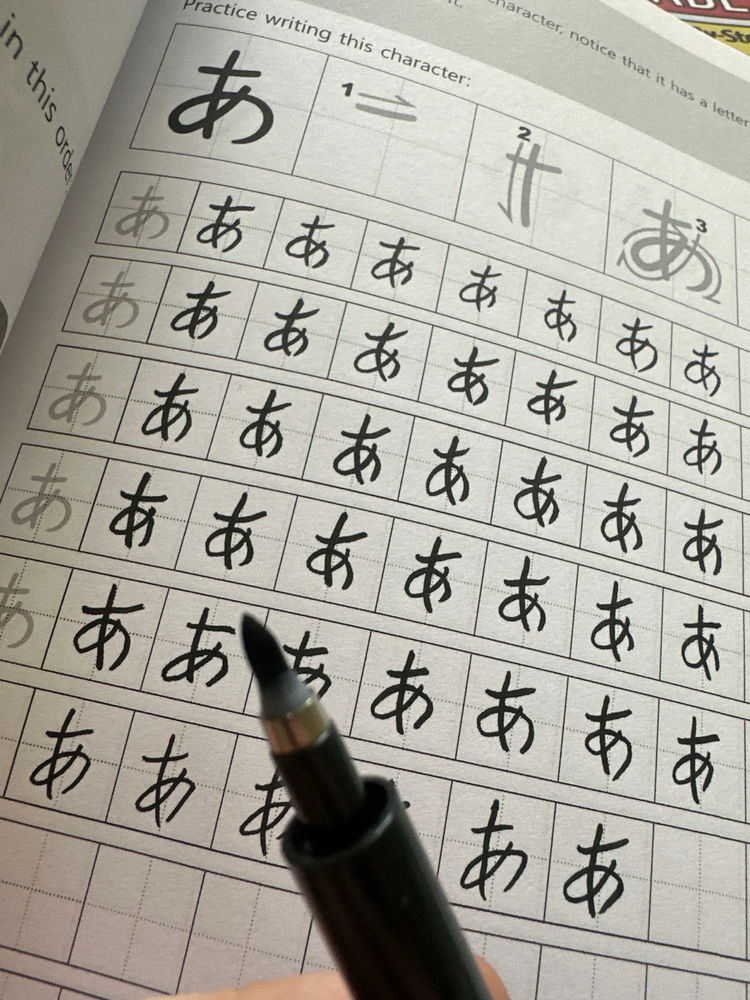 in this order
character, notice that it has a letter
Practice writing this character:
あ 1 2 あ 3
あ あ あ あ あ あ あ あ
あ あ あ あ あ あ あ あ
あ あ あ あ あ あ あ あ
あ あ あ あ あ あ あ あ
あ あ あ あ あ あ あ あ
あ あ あ あ あ